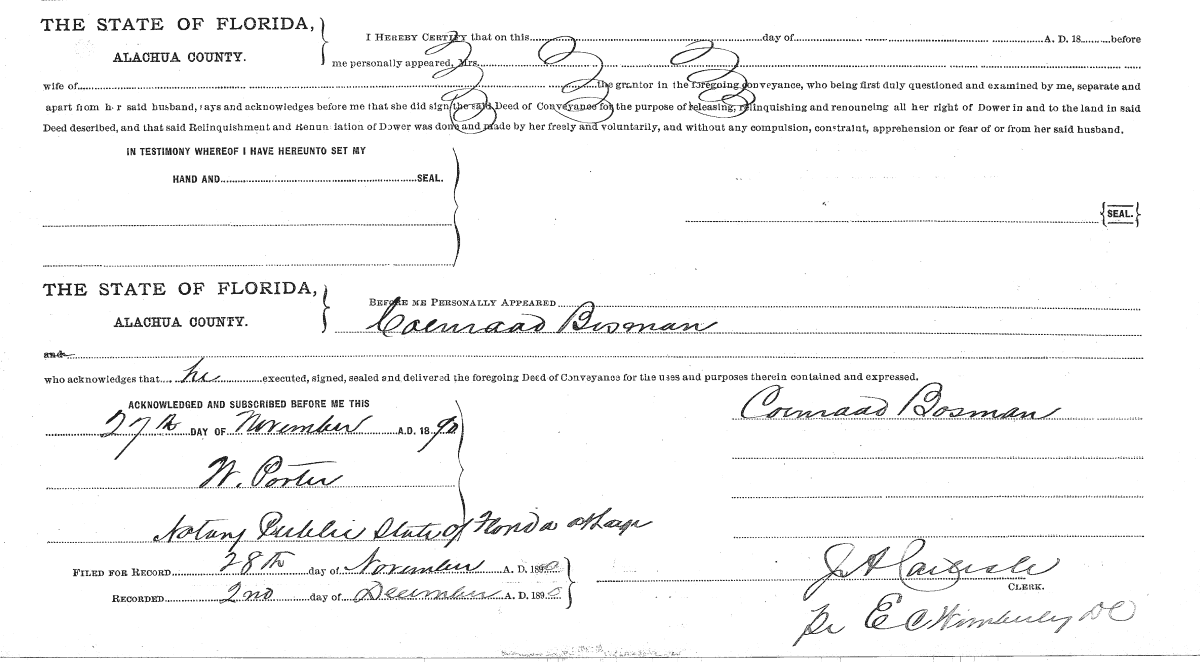 THE STATE OF FLORIDA,
ALACHUA COUNTY.
I HEREBY CERTIFY that on this............day of............A. D. 18......before
me personally appeared, Mrs.
wife of............the grantor in the foregoing conveyance, who being first duly questioned and examined by me, separate and
apart from her said husband, says and acknowledges before me that she did sign the said Deed of Conveyance for the purpose of releasing, relinquishing and renouncing all her right of Dower in and to the land in said
Deed described, and that said Relinquishment and Renunciation of Dower was done and made by her freely and voluntarily, and without any compulsion, constraint, apprehension or fear of or from her said husband.
IN TESTIMONY WHEREOF I HAVE HEREUNTO SET MY
HAND AND............SEAL.
{SEAL.}
THE STATE OF FLORIDA,
ALACHUA COUNTY.
BEFORE ME PERSONALLY APPEARED
Coenraad Bosman
and
who acknowledges that he executed, signed, sealed and delivered the foregoing Deed of Conveyance for the uses and purposes therein contained and expressed.
ACKNOWLEDGED AND SUBSCRIBED BEFORE ME THIS
27th DAY OF November A.D. 1890
Coenraad Bosman
W. Porter
Notary Public State of Florida at Large
FILED FOR RECORD 28th day of November A. D. 1890
RECORDED 2nd day of December A. D. 1890
J A Carlisle
CLERK.
Pr E C Wimberley DC